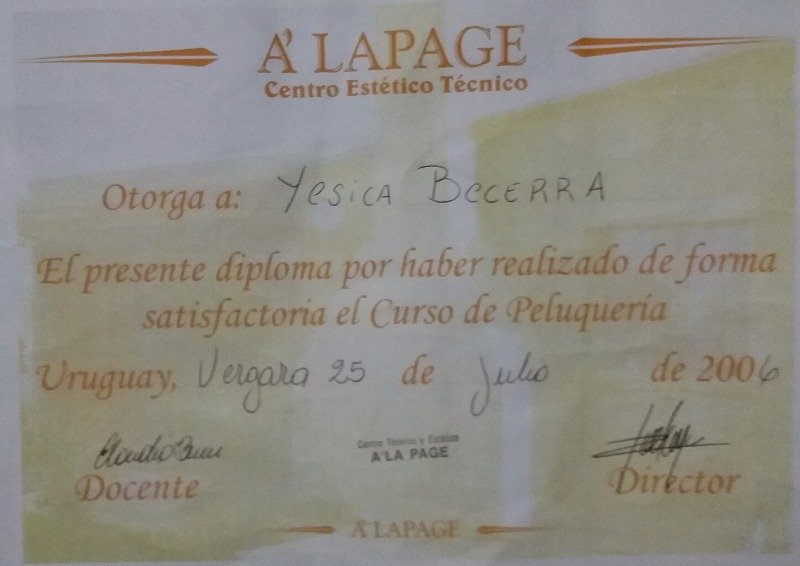 A' LAPAGE
Centro Estético Técnico
Otorga a: Yesica Becerra
El presente diploma por haber realizado de forma
satisfactoria el Curso de Peluquería
Uruguay, Vergara 25 de Julio de 2006
Centro Técnico y Estético
A'LA PAGE
Docente Director
A'LAPAGE